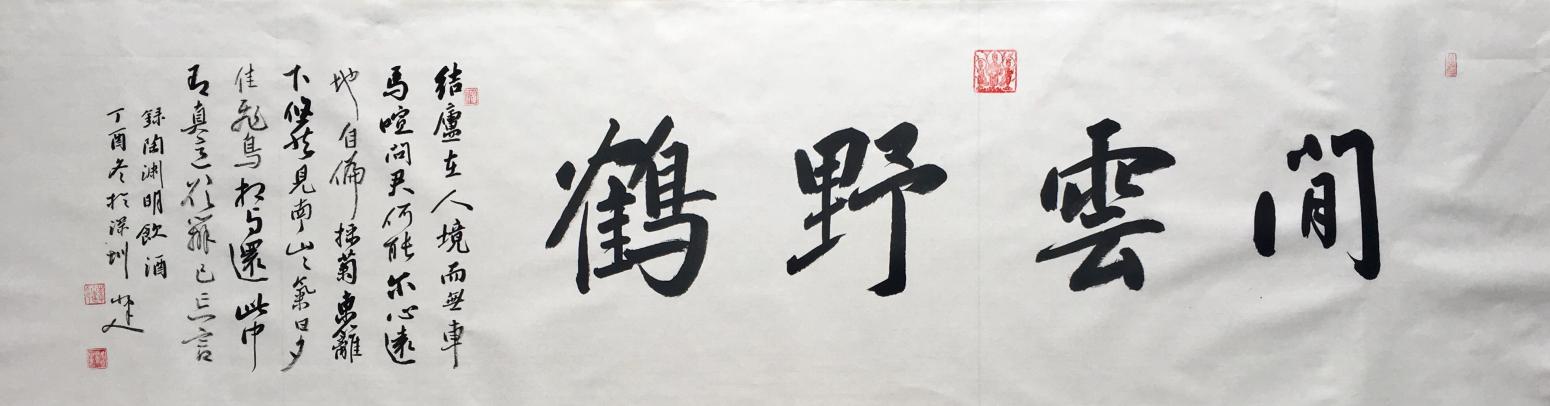 閒雲野鶴
結廬在人境而無車
馬喧問君何能尔心遠
地自偏採菊東籬
下悠然見南山〻氣日夕
佳飛鳥相与還此中
有真意欲辯已忘言
錄陶渊明飲酒
丁酉冬於深圳